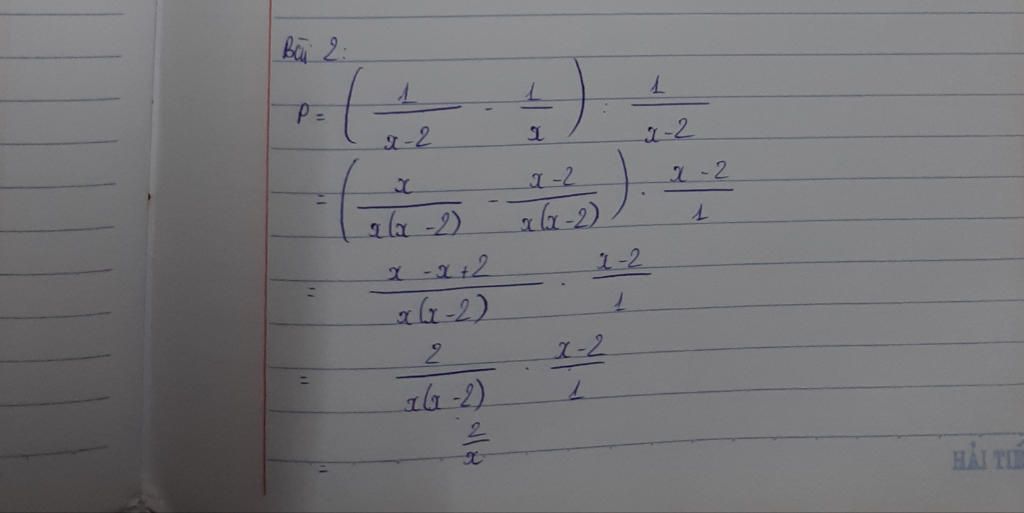 Bài 2:
P = ( 1/(x-2) - 1/x ) : 1/(x-2)
= ( x/(x(x-2)) - (x-2)/(x(x-2)) ) . (x-2)/1
= (x-x+2)/(x(x-2)) . (x-2)/1
= 2/(x(x-2)) . (x-2)/1
= 2/x
HẢI TIẾ